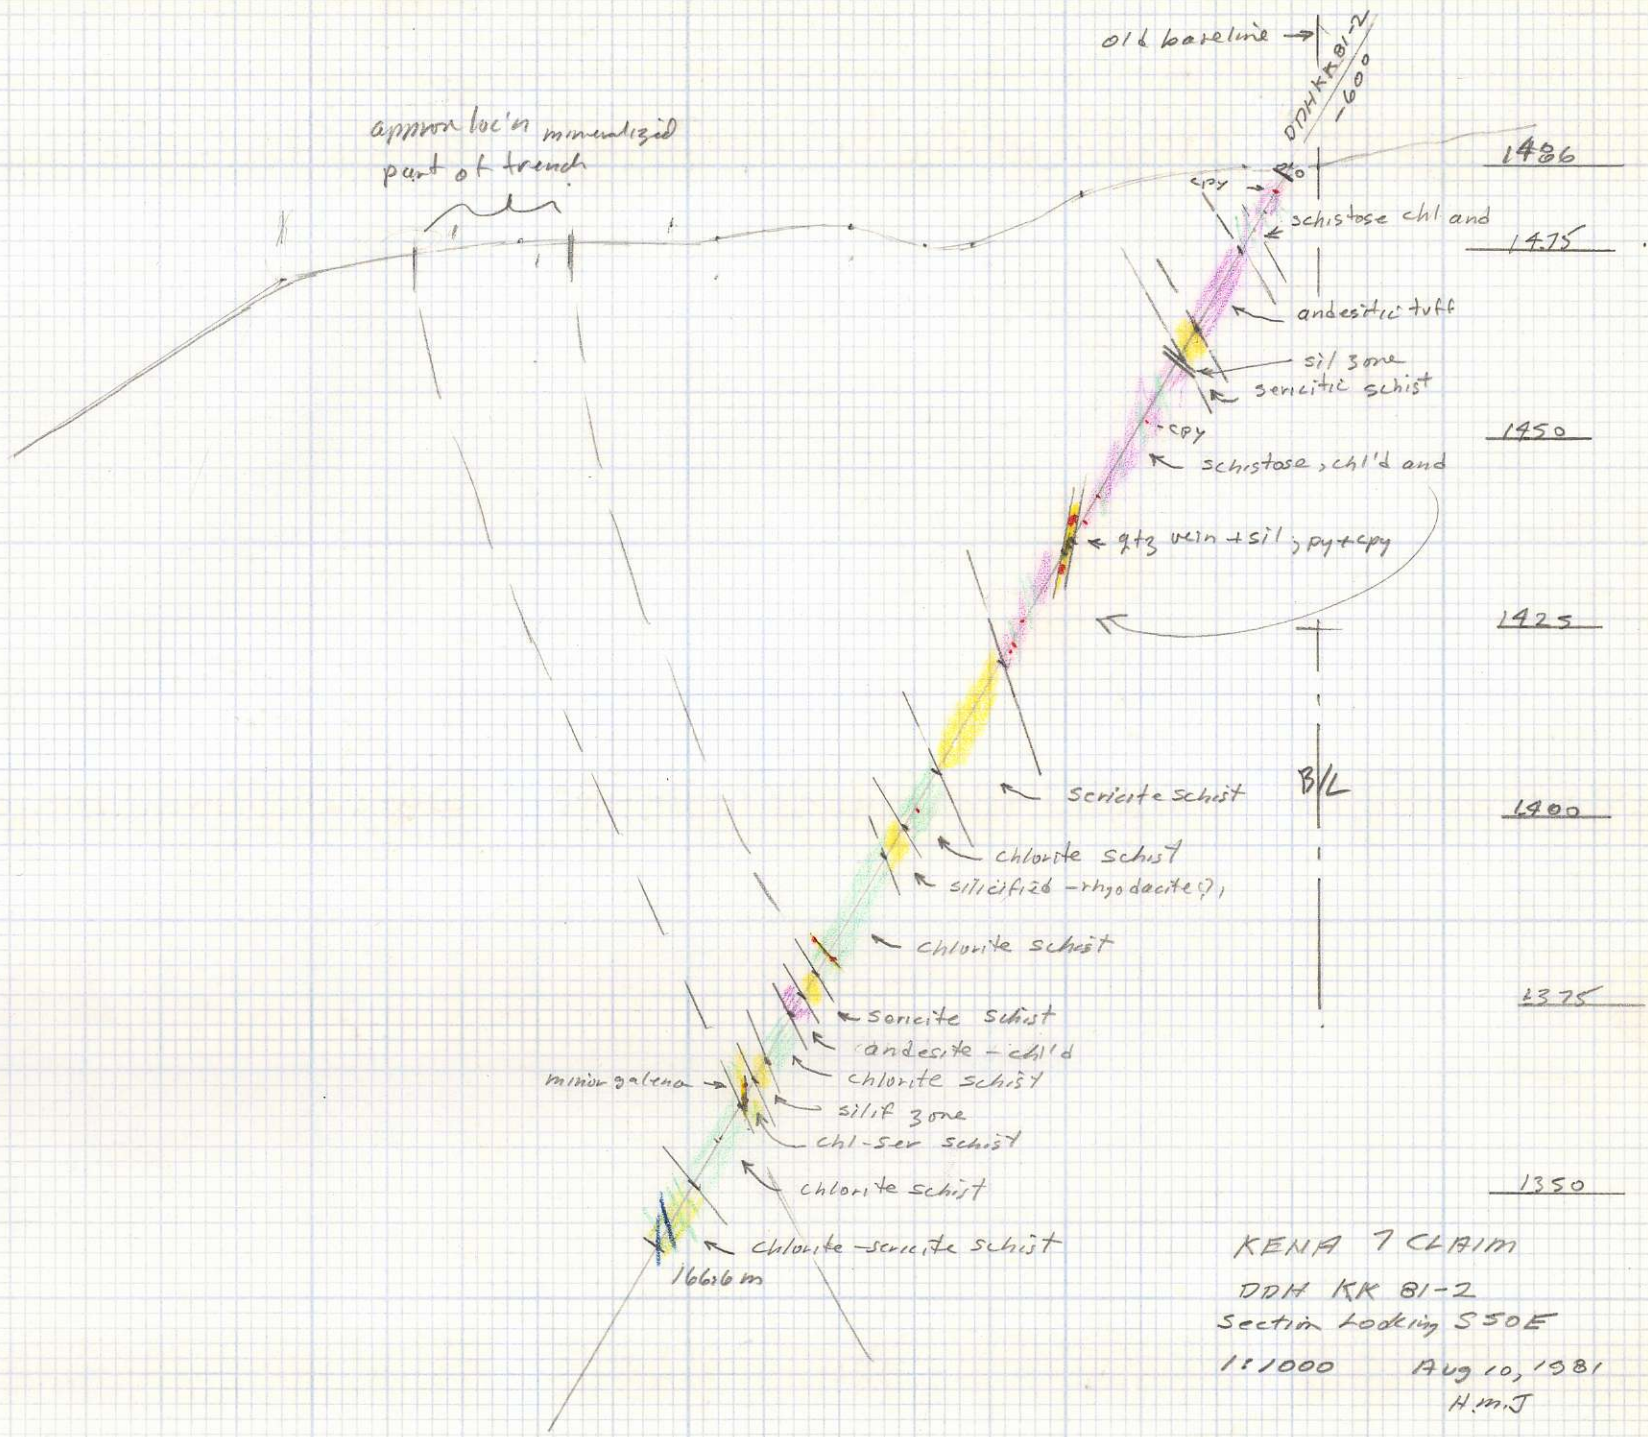 old baseline
DDH KK 81-2
-60°
approx loc'n mineralized
part of trench
1486
cpy
schistose chl and
1475
andesitic tuff
sil zone
sericitic schist
1450
cpy
schistose, chl'd and
qtz vein + sil; py + cpy
1425
B/L
sericite schist
1400
chlorite schist
silicified - rhyodacite(?)
chlorite schist
1375
sericite schist
andesite - chl'd
chlorite schist
minor galena
silif zone
chl-ser schist
chlorite schist
1350
chlorite-sericite schist
166.6 m
KENA 7 CLAIM
DDH KK 81-2
Section Looking S50E
1:1000 Aug 10, 1981
H.M.J